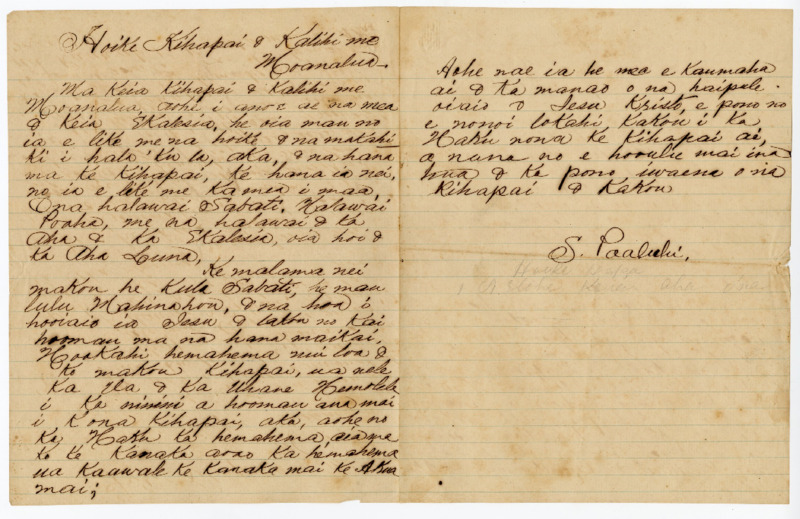 Hoike Kihapai o Kalihi me
Moanalua.
Ma Keia Kihapai o Kalihi me
Moanalua, aohi i anoe ae na mea
o Keia Ekalesia, he oia mau no
ia e like me na hoike o na makahi
ki i hala 'ku la, aka, o na hana
ma ke Kihapai, ke hana ia nei,
no ia e like me Ka mea i maa,
O na halawai Sabati, Halawai
Poaha, me na halawai o ka
Aha o Ka Ekalesia, oia hoi o
Ka Aha Luna,
Ke malama nei
makou he Kula Sabati, he mau
lulu Mahinahou, o na hoa i
hooiaio ia Iesu o lakou no Kai
hoomau ma na hana maikai,
Hookahi hemahema nui loa o
Ko makou Kihapai, ua nele
Ka Ila o Ka Uhane Hemolele
i Ke ninini a hoomau ana mai
i Kona Kihapai, aka, aohe no
Ka Haku Ka hemahema, aia ma
Ko Ke Kanaka aoao Ka hemahema
ua Kaawale Ke Kanaka mai Ke Akua
mai;
Aohe nae ia he mea e Kaumaha
ai o Ka manao o na haipule
oiaio o Iesu Kristo, e pono no
e nonoi lokahi Kakou i Ka
Haku nona Ke Kihapai ai,
a nana no e hooulu mai i na
hua o Ka pono iwaena o na
Kihapai o Kakou
S. Paaluhi,